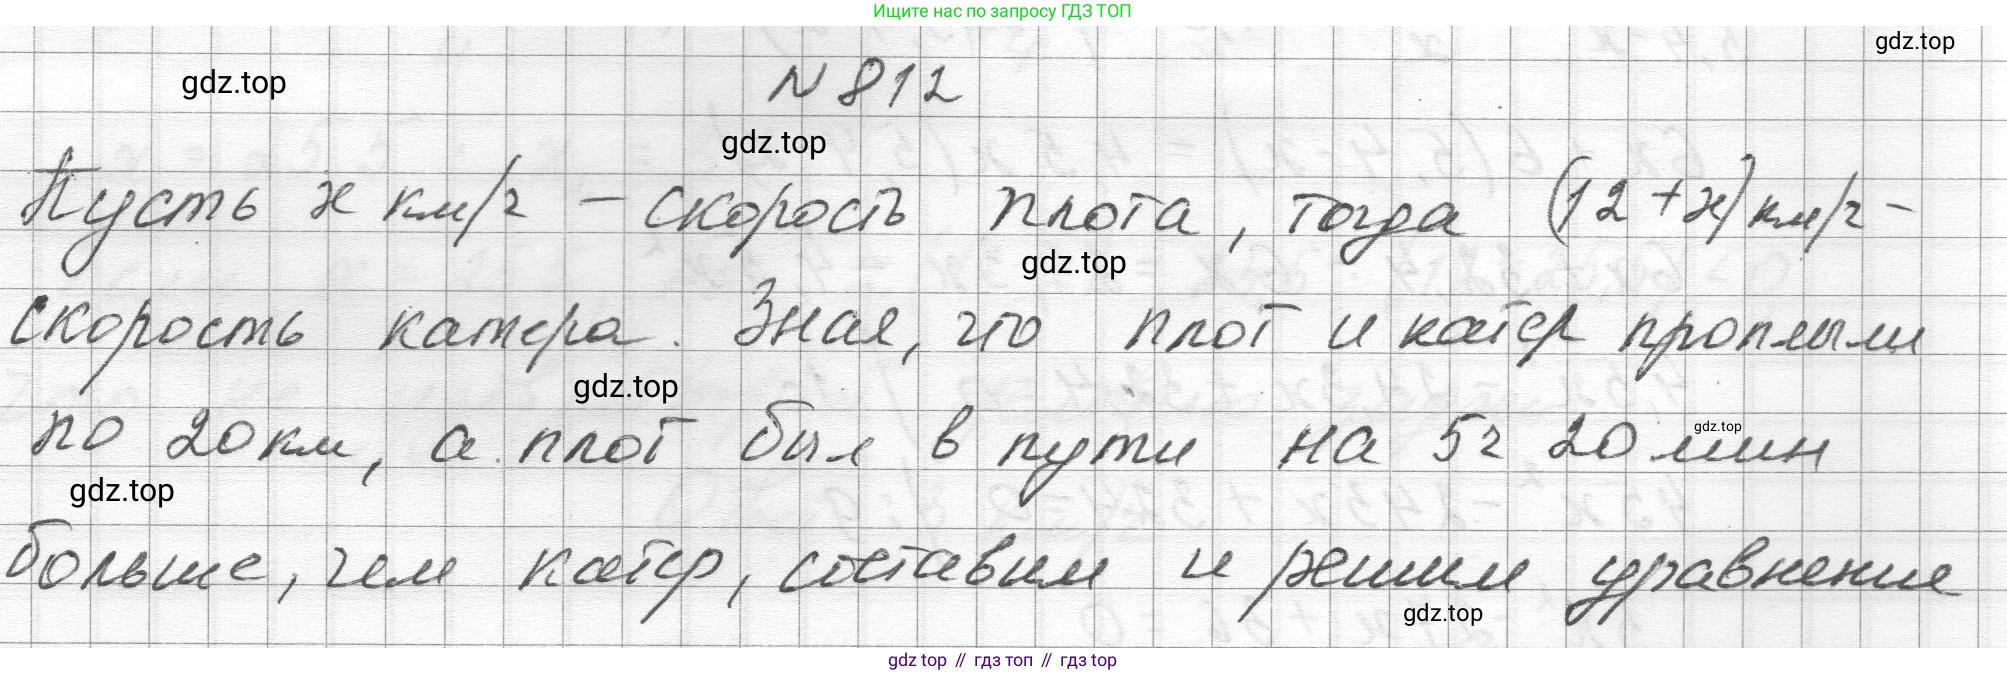 Ищите нас по запросу ГДЗ ТОП
gdz.top
gdz.top
N 812
gdz.top
Пусть x км/ч – скорость плота, тогда (12 + x) км/ч –
gdz.top
скорость катера. Зная, что плот и катер проплыли
gdz.top
по 20 км, а плот был в пути на 5 ч 20 мин
gdz.top
gdz.top
больше, чем катер, составим и решим уравнение
gdz.top
gdz top // гдз топ // гдз top